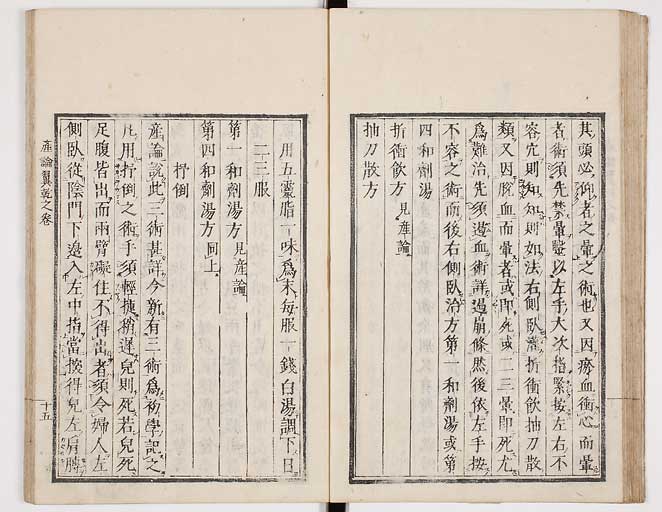 其頭必仰者之暈之術也又因瘀血衝心而暈
者術須先禁暈鼗以左手大次指緊按左右不
容穴則知知則如法右側臥 折衝飲抽刀散
類又因脫血而暈者或即死或一二三暈即死尤
爲難治先須遏血術詳遏崩條然後依左手按
不容之術而後右側臥 方第一和劑湯或第
四和劑湯
折衝飲方見產論
抽刀散方
用五靈脂一味爲末每服一錢白湯調下日
二三服
第一和劑湯方見產論
第四和劑湯方同上
抒倒
產論說此三術甚詳今新有三術爲初學記之
凡用抒倒之術手須輕捷稍遲兒則死若兒死
足腹皆出而兩臂礙住不得出者須令婦人左
側臥從陰門下邊入左中指當按得兒左肩髆
產論翼乾之卷
十五